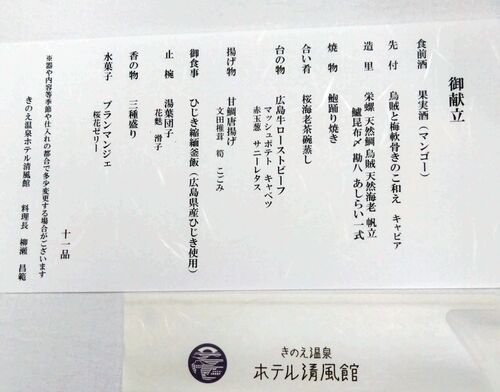 御献立
食前酒 果実酒(マンゴー)
先付 烏賊と梅軟骨きのこ和え キャビア
造里 栄螺 天然鯛 烏賊 天然海老 帆立
鱸昆布〆 勘八 あしらい一式
焼物 鮑踊り焼き
合い肴 桜海老茶碗蒸し
台の物 広島牛ローストビーフ
マッシュポテト キャベツ
赤玉葱 サニーレタス
揚げ物 甘鯛唐揚げ
文田椎茸 筍 こごみ
御食事 ひじき縮緬釜飯(広島県産ひじき使用)
止椀 湯葉団子
花麩 滑子
香の物 三種盛り
水菓子 ブランマンジェ
桜花ゼリー
十一品
※器や内容等季節や仕入れの都合で多少変更する場合がございます
きのえ温泉ホテル清風館 料理長 柳瀬 昌範
きのえ温泉
ホテル清風館